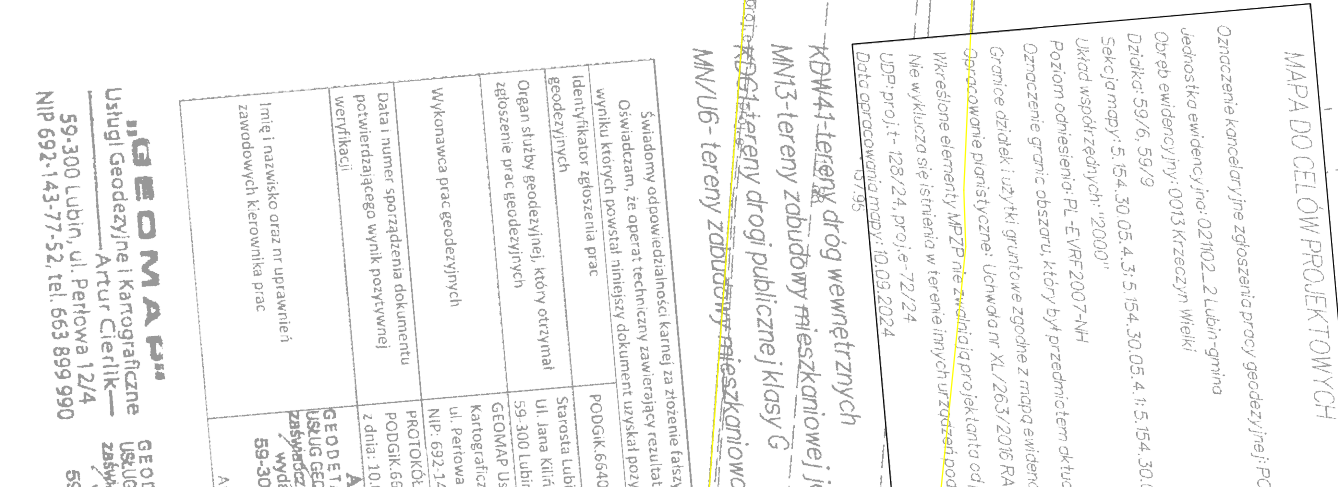 MAPA DO CELÓW PROJEKTOWYCH
Oznaczenie kancelaryjne zgłoszenia pracy geodezyjnej: PO
Jednostka ewidencyjna: 021102_2 Lubin-gmina
Obręb ewidencyjny: 0013 Krzeczyn Wielki
Działka: 59/6, 59/9
Sekcja mapy: 5.154.30.05.4.3; 5.154.30.05.4.1; 5.154.30.0
Układ współrzędnych: "2000"
Poziom odniesienia: PL-EVRF2007-NH
Oznaczenie granic obszaru, który był przedmiotem aktuc
Granice działek i użytki gruntowe zgodne z mapą ewidenc
Opracowanie planistyczne: Uchwała nr XL/263/2016 RA
Wkreślone elementy MPZP nie zwalniają projektanta od
Nie wyklucza się istnienia w terenie innych urządzeń pod
UDP: proj.t- 128/24, proj.e-72/24
Data opracowania mapy: 10.09.2024
KDW41-tereny dróg wewnętrznych
MN13-tereny zabudowy mieszkaniowej je
KDG1-tereny drogi publicznej klasy G
MN/U6- tereny zabudowy mieszkaniowo
Świadomy odpowiedzialności karnej za złożenie fałszy
Oświadczam, że operat techniczny zawierający rezultat
wyniku których powstał niniejszy dokument uzyskał pozy
Identyfikator zgłoszenia prac
geodezyjnych
PODGiK.6640
Organ służby geodezyjnej, który otrzymał
zgłoszenie prac geodezyjnych
Starosta Lubi
Ul. Jana Kiliń
59-300 Lubin
Wykonawca prac geodezyjnych
GEOMAP Us
Kartograficz
ul. Perłowa
NIP: 692-14
Data i numer sporządzenia dokumentu
potwierdzającego wynik pozytywnej
weryfikacji
PROTOKÓŁ
PODGiK.66
z dnia: 10.
Imię i nazwisko oraz nr uprawnień
zawodowych kierownika prac
GEODET
USŁUG GEO
zaświadcz
wyda
59-30
„GEOMAP"
Usługi Geodezyjne i Kartograficzne
Artur Cierlik
59-300 Lubin, ul. Perłowa 12/4
NIP 692-143-77-52, tel. 663 899 990
GEOD
USŁUG
zaświ